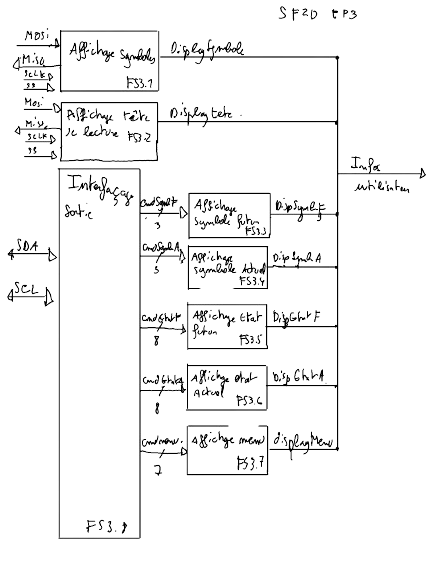 SF2D FP3
MOSI
MISO
SCLK
SS
Affichage Symboles
FS3.1
DisplaySymbole
MOSI
MISO
SCLK
SS
Affichage tête
de lecture FS3.2
Displaytete
Infos
utilisateur
Interfaçage
Sortie
SDA
SCL
FS3.
cmdSymbF
3
Affichage
symbole futur
FS3.3
DispSymbF
cmdSymbA
3
Affichage
symbole Actuel
FS3.4
DispSymbA
cmdEtatF
8
Affichage Etat
futur
FS3.5
DispEtatF
cmdEtatA
8
Affichage etat
Actuel
FS3.6
DispEtatA
cmdmenu
7
Affichage menu
FS3.7
displayMenu